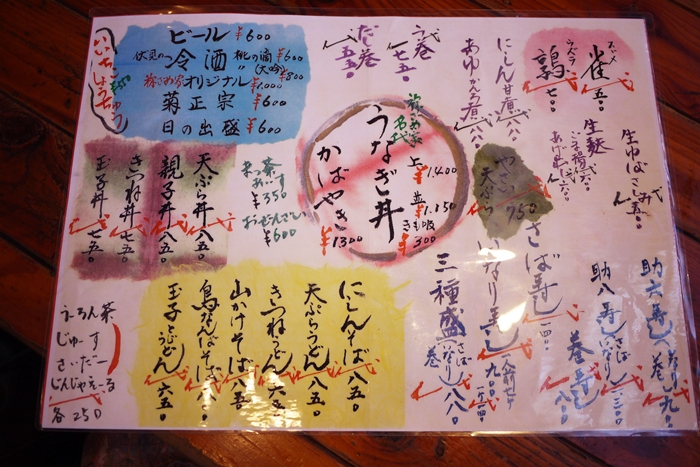 雀 五〇
すずめ
鶉 七〇
うずら
生ゆばさしみ
生麩
にしん甘煮 八八〇
あゆかんろ煮 八八〇
う巻 七五〇
だし巻 五五〇
ビール ¥600
伏見の冷酒 桃の滴 ¥600
〃 (大吟) ¥800
祢ざめ家オリジナル ¥1,000
菊正宗 ¥600
日の出盛 ¥600
いいちこ
祢ざめ家名代
うなぎ丼
上 ¥1,400
並 ¥1,150
きも吸 ¥300
かばやき ¥1300
やさい天ぷら 750
まっ茶あいす ¥350
おぜんざい ¥600
天ぷら丼 八五〇
親子丼 八五〇
きつね丼 七五〇
玉子丼 七五〇
助六寿し(いなり 巻) 九〇
助八寿し(さば いなり)
巻寿し 八〇
さば寿し
いなり寿し 九〇
三種盛(さば いなり 巻) 八八〇
にしんそば 八五〇
天ぷらうどん 八五〇
きつねうどん 六五〇
山かけそば 八五〇
鳥なんばそば 八〇
玉子とじうどん 六五〇
うーろん茶
じゅーす
さいだー
じんじゃえーる
各250